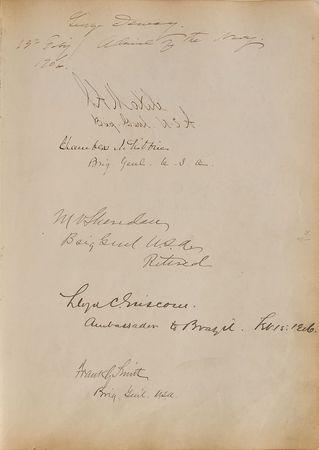 George Dewey.
Admiral of the Navy.
13th Feby
1906.
Chambers McKibbin
Brig Genl. U. S. A.
M V Sheridan
Brig Genl U.S.A.
Retired
Lloyd C. Griscom.
Ambassador to Brazil. Feb. 15. 1906.
Frank G. Smith
Brig. Genl. USA.